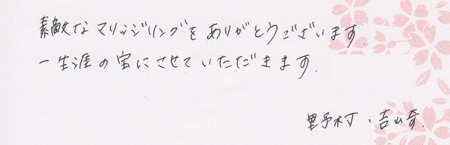 素敵なマリッジリングをありがとうございます.
一生涯の宝にさせていただきます.
野村・吉崎.